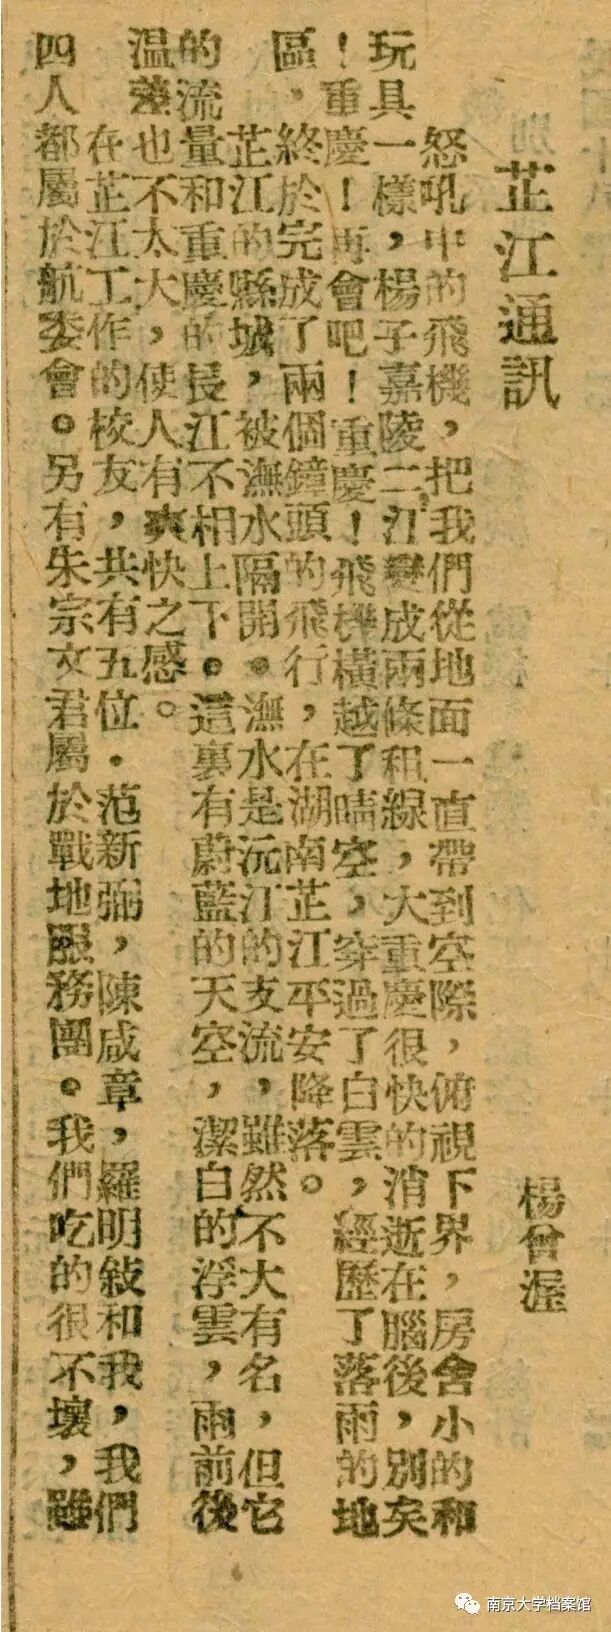 芷江通訊
楊曾渥
怒吼中的飛機，把我們從地面一直帶到空際，俯視下界，房舍小的和
玩具一樣，楊子嘉陵二江變成兩條粗線，大重慶很快的消逝在腦後，別矣
！重慶！再會吧！重慶！飛機橫越了晴空，穿過了白雲，經歷了落雨的地
區，終於完成了兩個鐘頭的飛行，在湖南芷江平安降落。
芷江的縣城，被潕水隔開。潕水是沅江的支流，雖然不大有名，但它
的流量和重慶的長江不相上下。這裏有蔚藍的天空，潔白的浮雲，雨前後
温差也不太大，使人有爽快之感。
在芷江工作的校友，共有五位．范新弼，陳咸章，羅明敍和我，我們
四人都屬於航委會。另有朱宗文君屬於戰地服務團。我們吃的很不壞，雖
南京大学档案馆